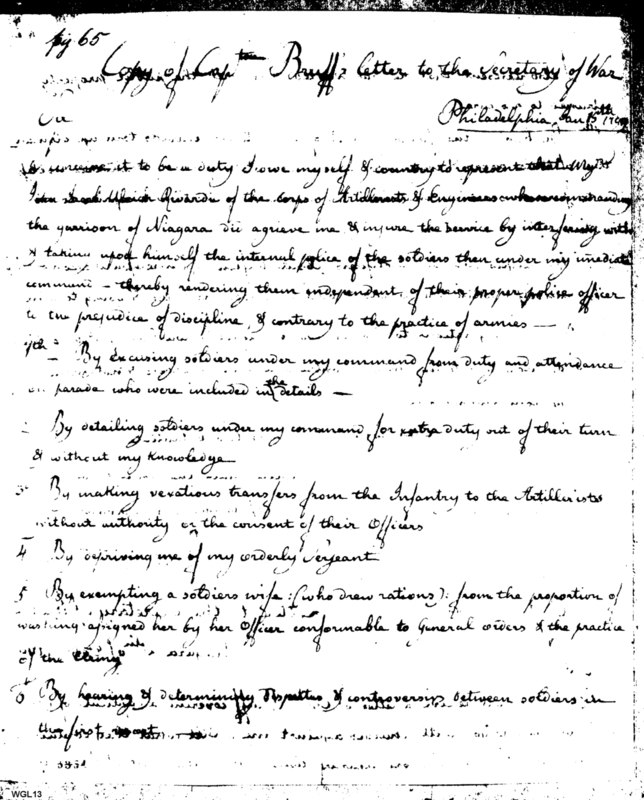 pg 65
Copy of Capten Bruff's letter to the Secretary of War
Philadelphia, Jany
Sir
it to be a duty I owe myself & country to represent that Majr
Rivardi of the Corps of Artillerists & Engineers who commanding
the garrison of Niagara did agrieve me & injure the service by interfering with
& taking upon himself the internal police of the soldiers then under my imediate
command - thereby rendering them independent of their proper police officer
to the prejudice of discipline, & contrary to the practice of armies —
By excusing soldiers under my command from duty and attendance
on parade who were included in the details —
By detailing soldiers under my command, for extra duty out of their turn
& without my knowledge
3 By making vexatious transfers from the Infantry to the Artillerists
without authority or the consent of their Officers
4 By depriving me of my orderly Serjeant
5 By exempting a soldiers wife (who drew rations) from the proportion of
washing assigned her by her Officer conformable to General orders & the practice
of the
6 By hearing & determining disputes & controversies between soldiers in
the first
WGL13